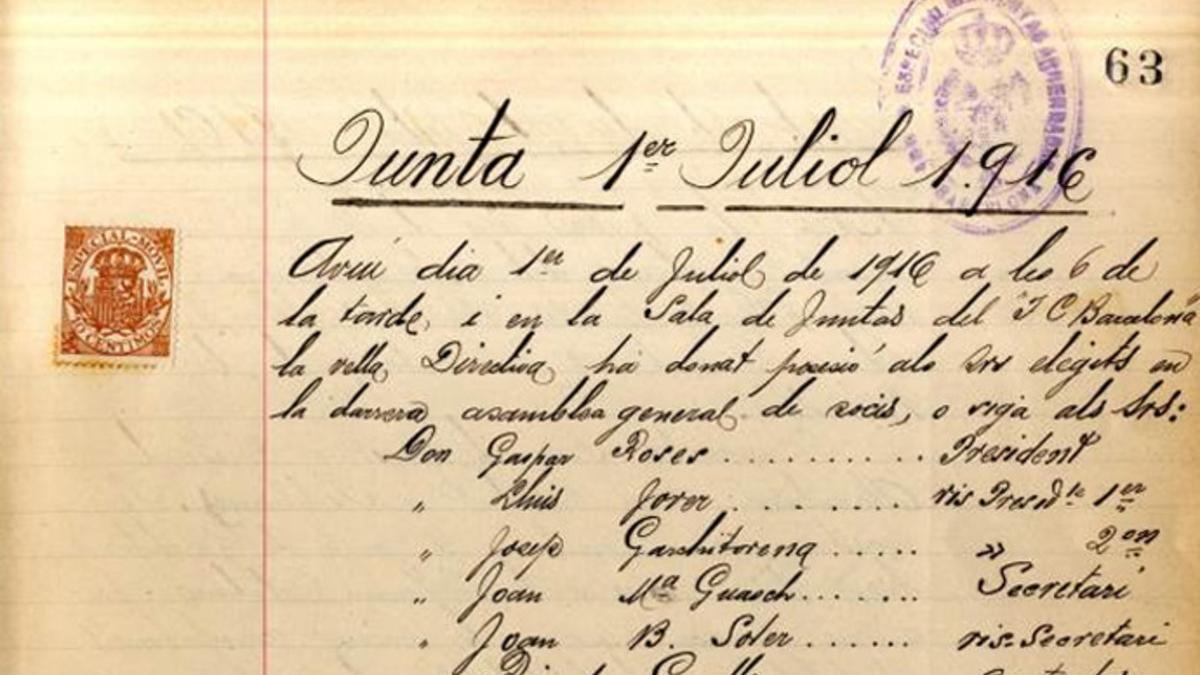 63
Junta 1er Juliol 1.916
ESPECIAL MOVIL
10 CENTIMOS
Avui dia 1er de Juliol de 1916 a les 6 de
la tarde, i en la Sala de Juntas del "F C Barcelona"
la vella Directiva ha donat posesió als Srs elegits en
la darrera asamblea general de socis, o siga als Srs:
Don Gaspar Roses .......... President
" Lluis Jover .......... vis Presidte 1er
" Josep Ganchitorena ..... " 2on
" Joan Ma Guasch ...... Secretari
" Joan B. Soler ...... vis-Secretari